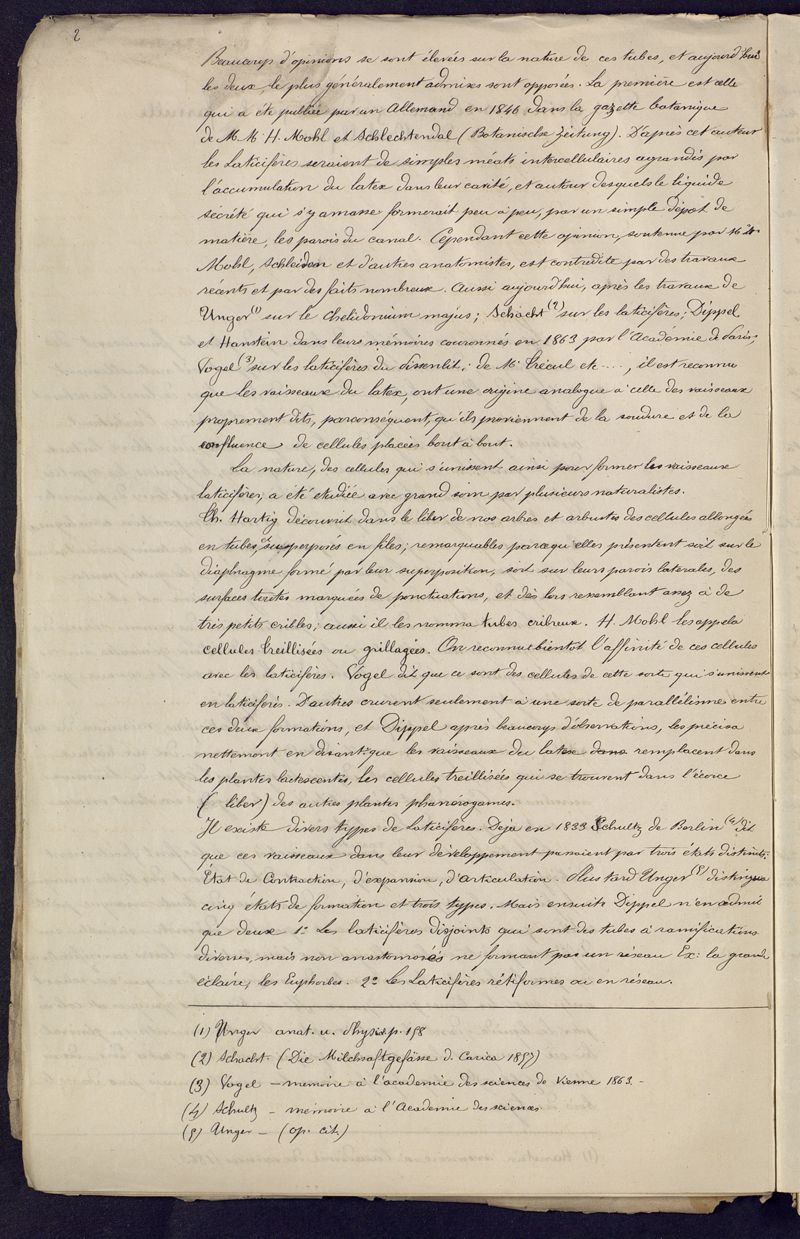 2
Beaucoup d'opinions se sont élevées sur la nature de ces tubes, et aujourd'hui
les deux, le plus généralement admises sont opposées. La première est celle
qui a été publiée par un Allemand en 1846 dans la gazette botanique
de M.M. H. Mohl et Schlechtendal (Botanische Zeitung). D'après cet auteur
les Laticifères seraient de simples méats intercellulaires agrandis par
l'accumulation du latex dans leur cavité, et autour desquels le liquide
sécrété qui s'y amasse formerait peu à peu, par un simple dépôt de
matière, les parois du canal. Cependant cette opinion, soutenue par M. H.
Mohl, Schleiden et d'autres anatomistes, est contredite par des travaux
récents et par des faits nombreux. Aussi aujourd'hui, après les travaux de
Unger (1) sur le Chelidonium majus; Schacht (2) sur les laticifères; Dippel
et Hanstein dans leurs mémoires couronnés en 1863 par l'Académie de Paris;
Vogel (3) sur les laticifères du ; de M. Trécul etc...., il est reconnu
que les vaisseaux du latex, ont une origine analogue à celle des vaisseaux
proprement dits, parconséquent, qu'ils proviennent de la soudure et de la
confluence de cellules placées bout à bout.
La nature, des cellules qui s'unissent ainsi pour former les vaisseaux
laticifères, a été etudiée avec grand soin par plusieurs naturalistes.
Th. Hartig découvrit dans le liber de nos arbres et arbustes des cellules allongées
en tubes et superposés en files; remarquables parcequ'elles présentent soit sur le
diaphragme formé par leur superposition, soit sur leurs parois latérales, des
surfaces toutes marquées de ponctuations, et dès lors ressemblant assez à de
très petits cribles; aussi il les nomma tubes cribreux. H. Mohl les appela
cellules treillisées ou grillagées. On reconnut bientôt l'affinité de ces cellules
avec les laticifères. Vogel dit que ce sont des cellules de cette sorte qui s'unissent
en laticifères. D'autres crurent seulement à une sorte de parallélisme entre
ces deux formations, et Dippel après beaucoup d'observations, les précisa
nettement en disant que les vaisseaux du latex dans remplacent dans
les plantes lactescentes, les cellules treillisées qui se trouvent dans l'écorce
( liber) des autres plantes phanérogames.
Il existe divers types de Laticifères. Deja en 1833 Schultz de Berlin (4) dit
que ces vaisseaux dans leur développement passaient par trois états distincts:
État de Contraction, d'expansion, d'articulation. Plus tard Unger (5) distingue
cinq états de formation et trois types. Mais ensuite Dippel n'en admit
que deux 1° Les laticifères disjoints qui sont des tubes à ramifications
diverses, mais non anastomosés ne formant pas un réseau Ex: la grande
éclaire, les Euphorbes. 2° Les Laticifères rétiformes ou en réseau.
(1) Unger anat. u. Physiol. p. 158
(2) Schacht - (Die Milchsaftgefässe d. Carica 1857)
(3) Vogel - mémoire à l'académie des sciences de Vienne 1863.
(4) Schultz - mémoire à l'Academie des sciences
(5) Unger - (op. cit.)